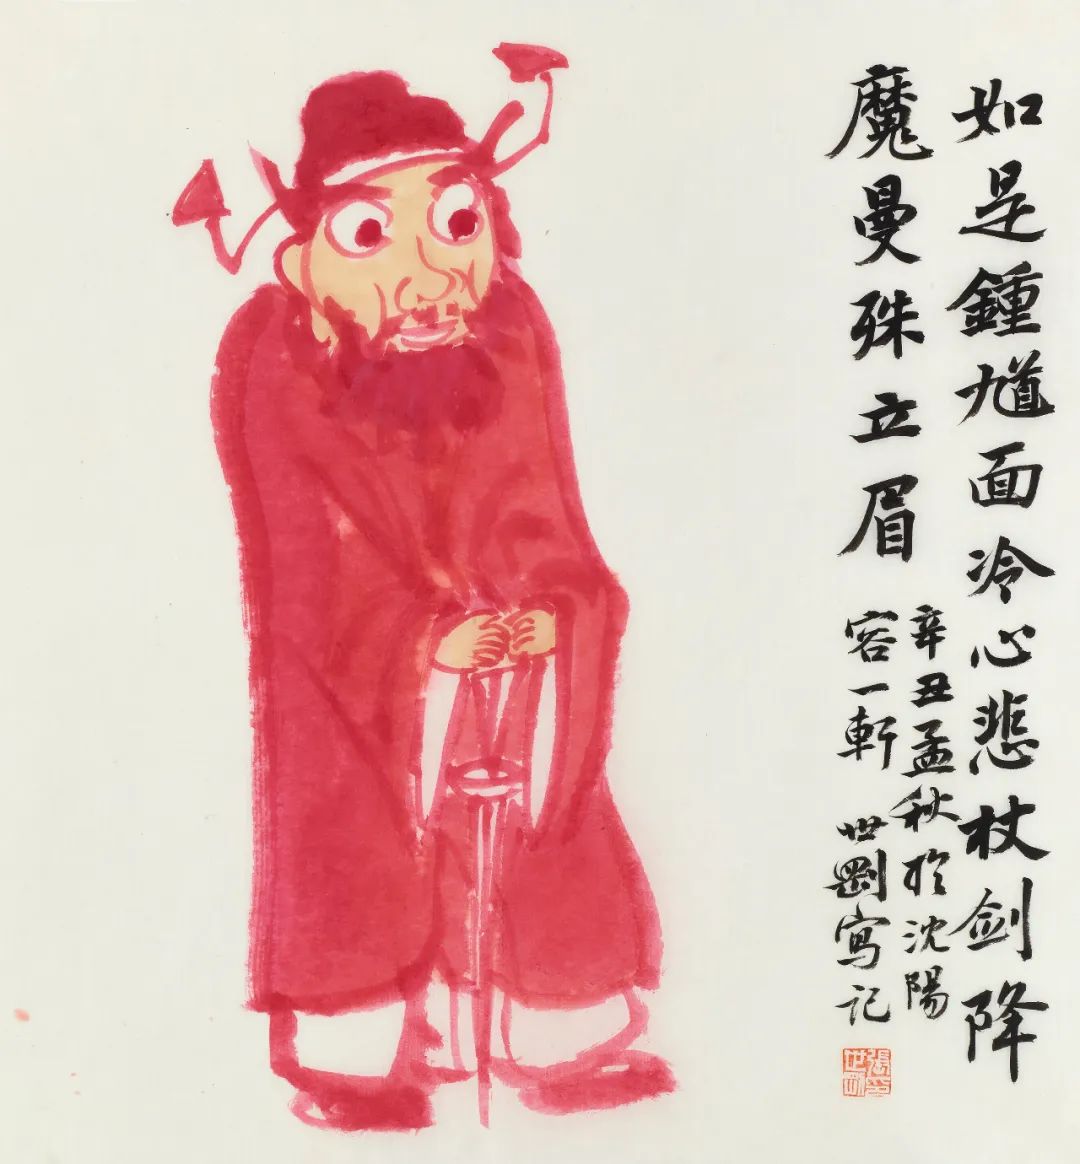 如是鍾馗面冷心悲杖剑降
魔曼殊立眉
辛丑孟秋於沈陽
容一軒 世剛寫记
張印世剛